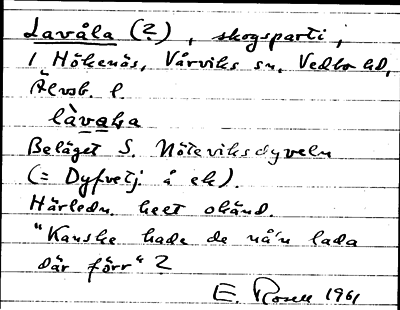 Lavåla (?), skogsparti,
i Hökenäs, Vårviks sn, Vedbo hd,
Älvsb. l.
làvala
Beläget S. Nöteviksdyveln
(= Dyfvetj. å ek).
Härledn. helt okänd.
"Kanske hade de nå'n lada
där förr"?
E. Rosell 1961